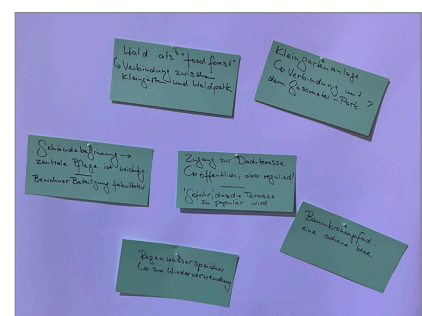 Wald als "food forest"
↳ Verbindung zwischen
Kleingarten und Waldpark
Kleingartenanlage
↳ Verbindung mit
dem Gasometer-Park?
Gebäudebegrünung →
zentrale Pflege ist wichtig
Bewohner Beteiligung fakultativ
Zugang zur Dachterasse
↳ öffentlich, aber reguliert!
'Gefahr', dass die Terasse
zu populär wird
Baumkronenpfad:
eine schöne Idee
Regenwasserspeicher
↳ zur Wiederverwendung